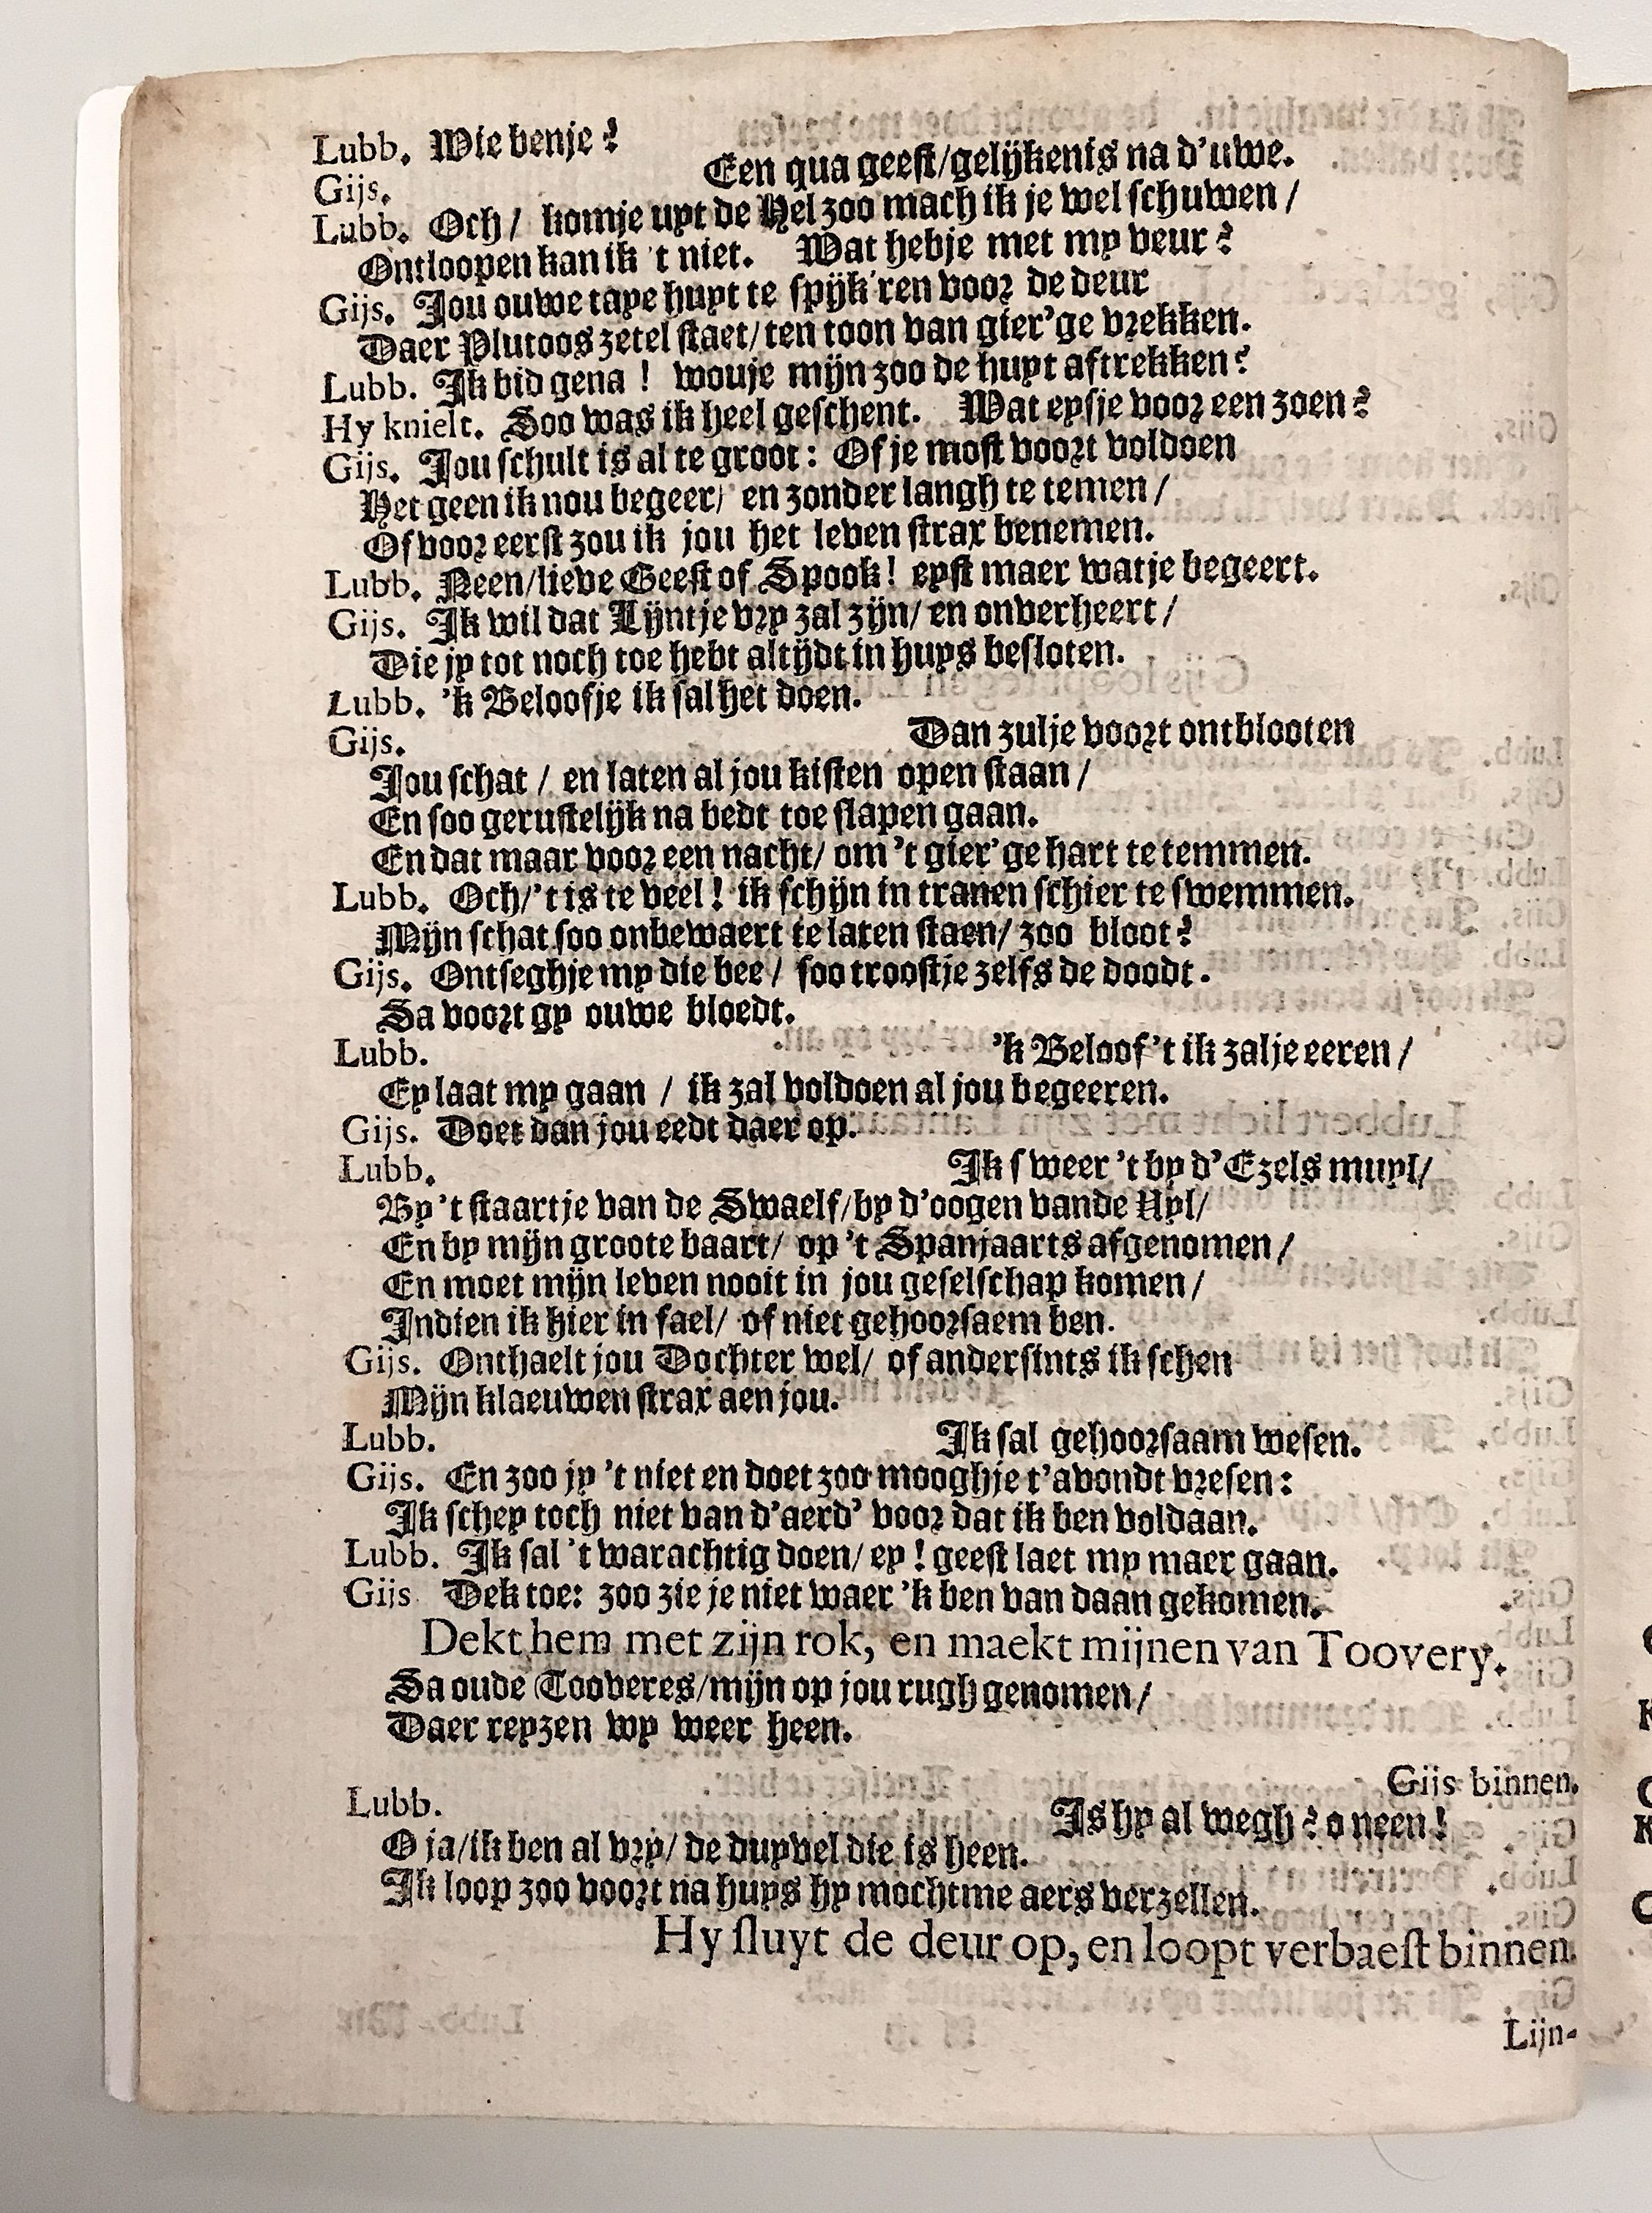 Lubb. Wie benje?
Gijs. Een qua geest/gelijkenis na d'uwe.
Lubb. Och/ komje uyt de Hel zoo mach ik je wel schuwen/
Ontloopen kan ik 't niet. Wat hebje met my veur?
Gijs. Jou ouwe taye huyt te spijk'ren voor de deur
Daer Plutoos zetel staet/ten toon van gier'ge vrekken.
Lubb. Ik bid gena! wouje mijn zoo de huyt aftrekken?
Hy knielt. Soo was ik heel geschent. Wat eysje voor een zoen?
Gijs. Jou schult is al te groot: Of je most voort voldoen
Het geen ik nou begeer/ en zonder langh te temen/
Of voor eerst zou ik jou het leven strax benemen.
Lubb. Neen/lieve Geest of Spook! eyst maer watje begeert.
Gijs. Ik wil dat Lijntje vry zal zijn/ en onverheert/
Die jy tot noch toe hebt altijdt in huys besloten.
Lubb. 'k Beloofje ik sal het doen.
Gijs. Dan zulje voort ontblooten
Jou schat/ en laten al jou kisten open staan/
En soo gerustelijk na bedt toe slapen gaan.
En dat maar voor een nacht/ om 't gier'ge hart te temmen.
Lubb. Och/'t is te veel! ik schijn in tranen schier te swemmen.
Mijn schat soo onbewaert te laten staen/ zoo bloot?
Gijs. Ontseghje my die bee/ soo troostje zelfs de doodt.
Sa voort gy ouwe bloedt.
Lubb. 'k Beloof 't ik zalje eeren/
Ey laat my gaan/ ik zal voldoen al jou begeeren.
Gijs. Doet dan jou eedt daer op.
Lubb. Ik sweer 't by d'Ezels muyl/
By 't staartje van de Swaelf/by d'oogen vande Uyl/
En by mijn groote baart/ op 't Spanjaarts afgenomen/
En moet mijn leven nooit in jou geselschap komen/
Indien ik hier in fael/ of niet gehoorsaem ben.
Gijs. Onthaelt jou Dochter wel/ of andersints ik schen
Mijn klaeuwen strax aen jou.
Lubb. Ik sal gehoorsaam wesen.
Gijs. En zoo jy 't niet en doet zoo mooghje t'avondt vresen:
Ik schey toch niet van d'aerd' voor dat ik ben voldaan.
Lubb. Ik sal 't warachtig doen/ ey! geest laet my maer gaan.
Gijs Dek toe: zoo zie je niet waer 'k ben van daan gekomen.
Dekt hem met zijn rok, en maekt mijnen van Toovery.
Sa oude Tooveres/mijn op jou rugh genomen/
Daer reyzen wy weer heen.
Gijs binnen.
Lubb. Is hy al wegh? o neen!
O ja/ik ben al vry/ de duyvel die is heen.
Ik loop zoo voort na huys hy mochtme aers verzellen.
Hy sluyt de deur op, en loopt verbaest binnen.
Lijn-